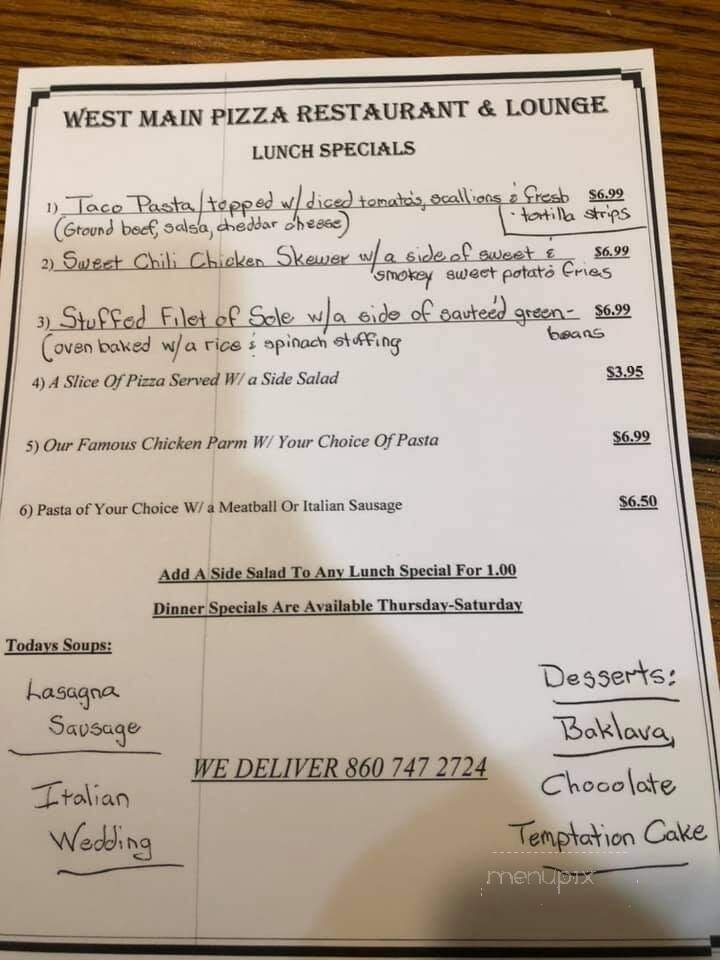 WEST MAIN PIZZA RESTAURANT & LOUNGE
LUNCH SPECIALS
1) Taco Pasta/topped w/diced tomato's, scallions & fresh $6.99
(Ground beef, salsa, cheddar cheese) · tortilla strips
2) Sweet Chili Chicken Skewer w/a side of sweet & $6.99
smokey sweet potato fries
3) Stuffed Filet of Sole w/a side of sauteé'd green- $6.99
(oven baked w/a rice & spinach stuffing beans
4) A Slice Of Pizza Served W/ a Side Salad $3.95
5) Our Famous Chicken Parm W/ Your Choice Of Pasta $6.99
6) Pasta of Your Choice W/ a Meatball Or Italian Sausage $6.50
Add A Side Salad To Any Lunch Special For 1.00
Dinner Specials Are Available Thursday-Saturday
Todays Soups:
Lasagna
Sausage
Italian
Wedding
WE DELIVER 860 747 2724
Desserts:
Baklava,
Chocolate
Temptation Cake
menupix